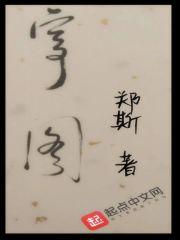 图
郑斯 著
起 起点中文网